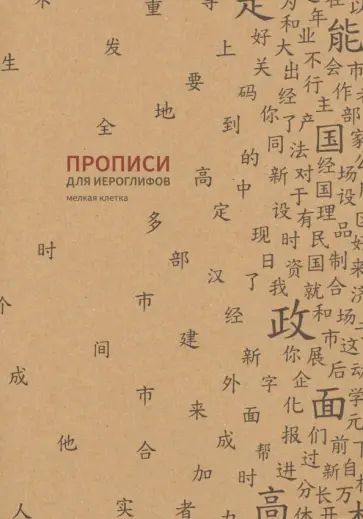 重 定
发 上 好 和 业 能
生 大 不 在 市
要 关 出 行 会
地 码 经 主 作
全 到 你 了 产 部
的 同 法 国 家
ПРОПИСИ
ДЛЯ ИЕРОГЛИФОВ
高 中 新 对 经 场
мелкая клетка
定 设 于 国 设
多 现 时 有 理
时 部 日 资 民 品 好
汉 了 我 国 制 来
个 市 经 就 合 济
建 政 和 场
间 新 你 展 市 这
成 市 外 字 企 后 动
来 面 化 面 学
他 成 帮 报 们 元
合 加 时 进 过 前 下
人 实 者 高 分 新 自